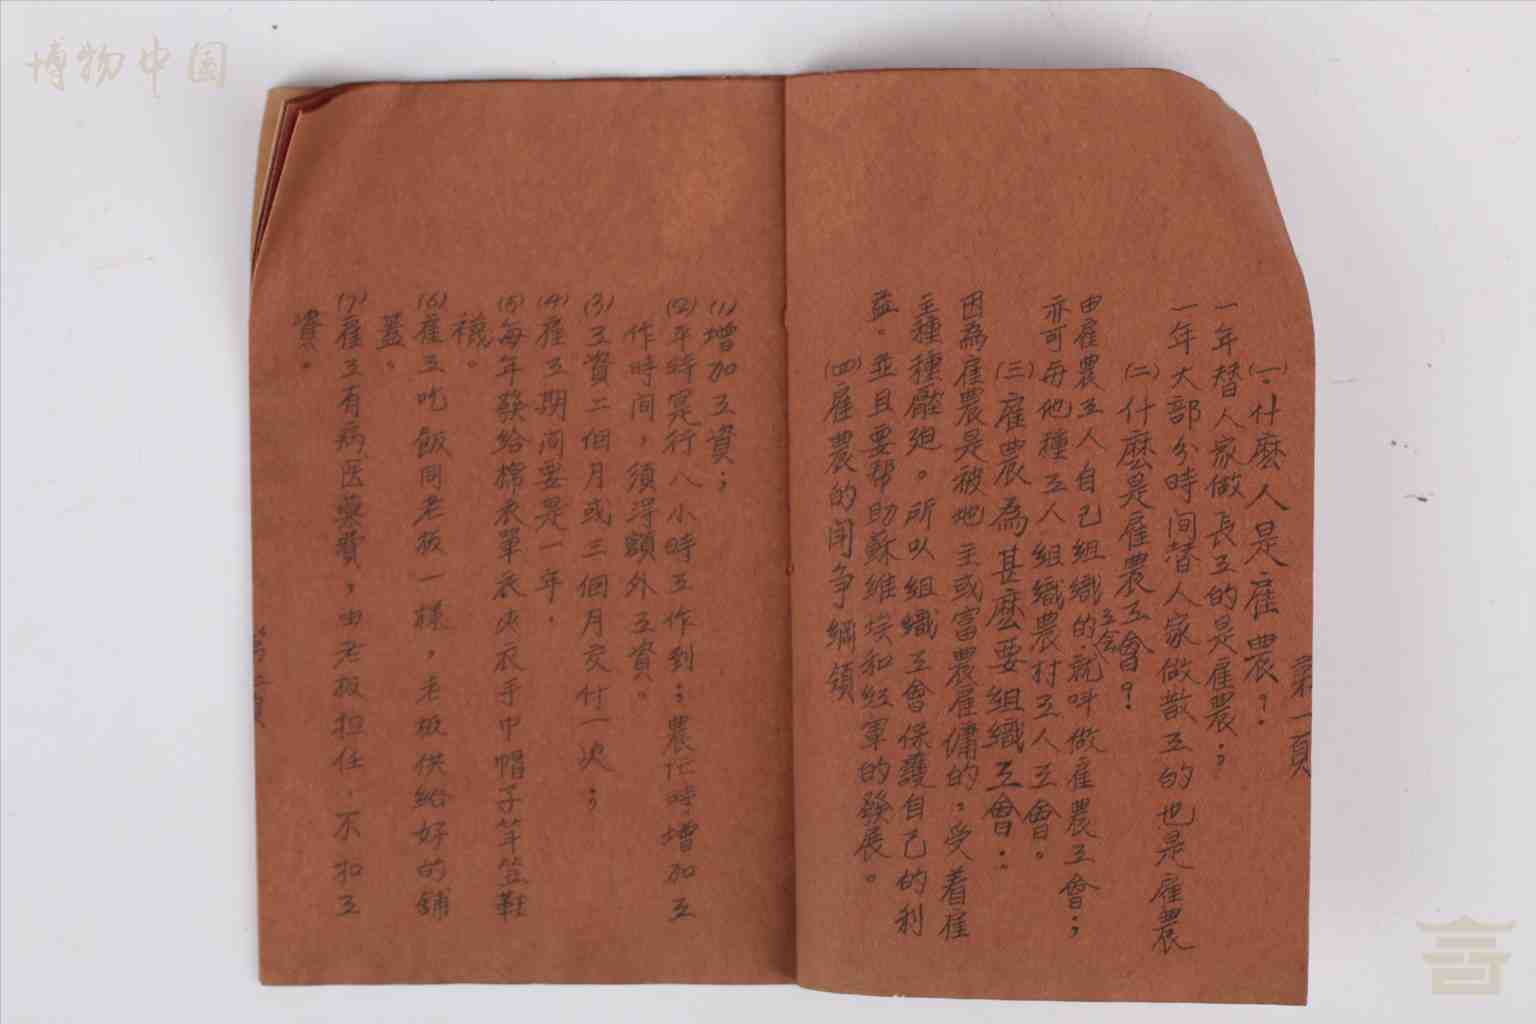 博物中国
第一頁
(一)什麽人是雇農？
一年替人家做長工的是雇農；
一年大部分時间替人家做散工的也是雇農
(二)什麽是雇農工會？
由雇農工人自己組織的就呌做雇農工會；
工會
亦可与他種工人組織農村工人工會。
(三)雇農為甚麽要組織工會：
因為雇農是被地主或富農雇傭的，受着雇
主種種壓廹。所以組織工會保護自己的利
益。並且要帮助蘇維埃和红軍的發展。
(四)雇農的鬥争綱領
(1)增加工資；
(2)平時寔行八小時工作制；農忙時增加工
作時间，須得額外工資。
(3)工資二個月或三個月交付一次；
(4)雇工期间要是一年．
(5)每年發給棉衣單衣夾衣手巾帽子竿笠鞋
襪。
(6)雇工吃飯同老板一樣，老板供給好的鋪
蓋。
(7)雇工有病医藥費，由老板担任，不扣工
資。
第二頁